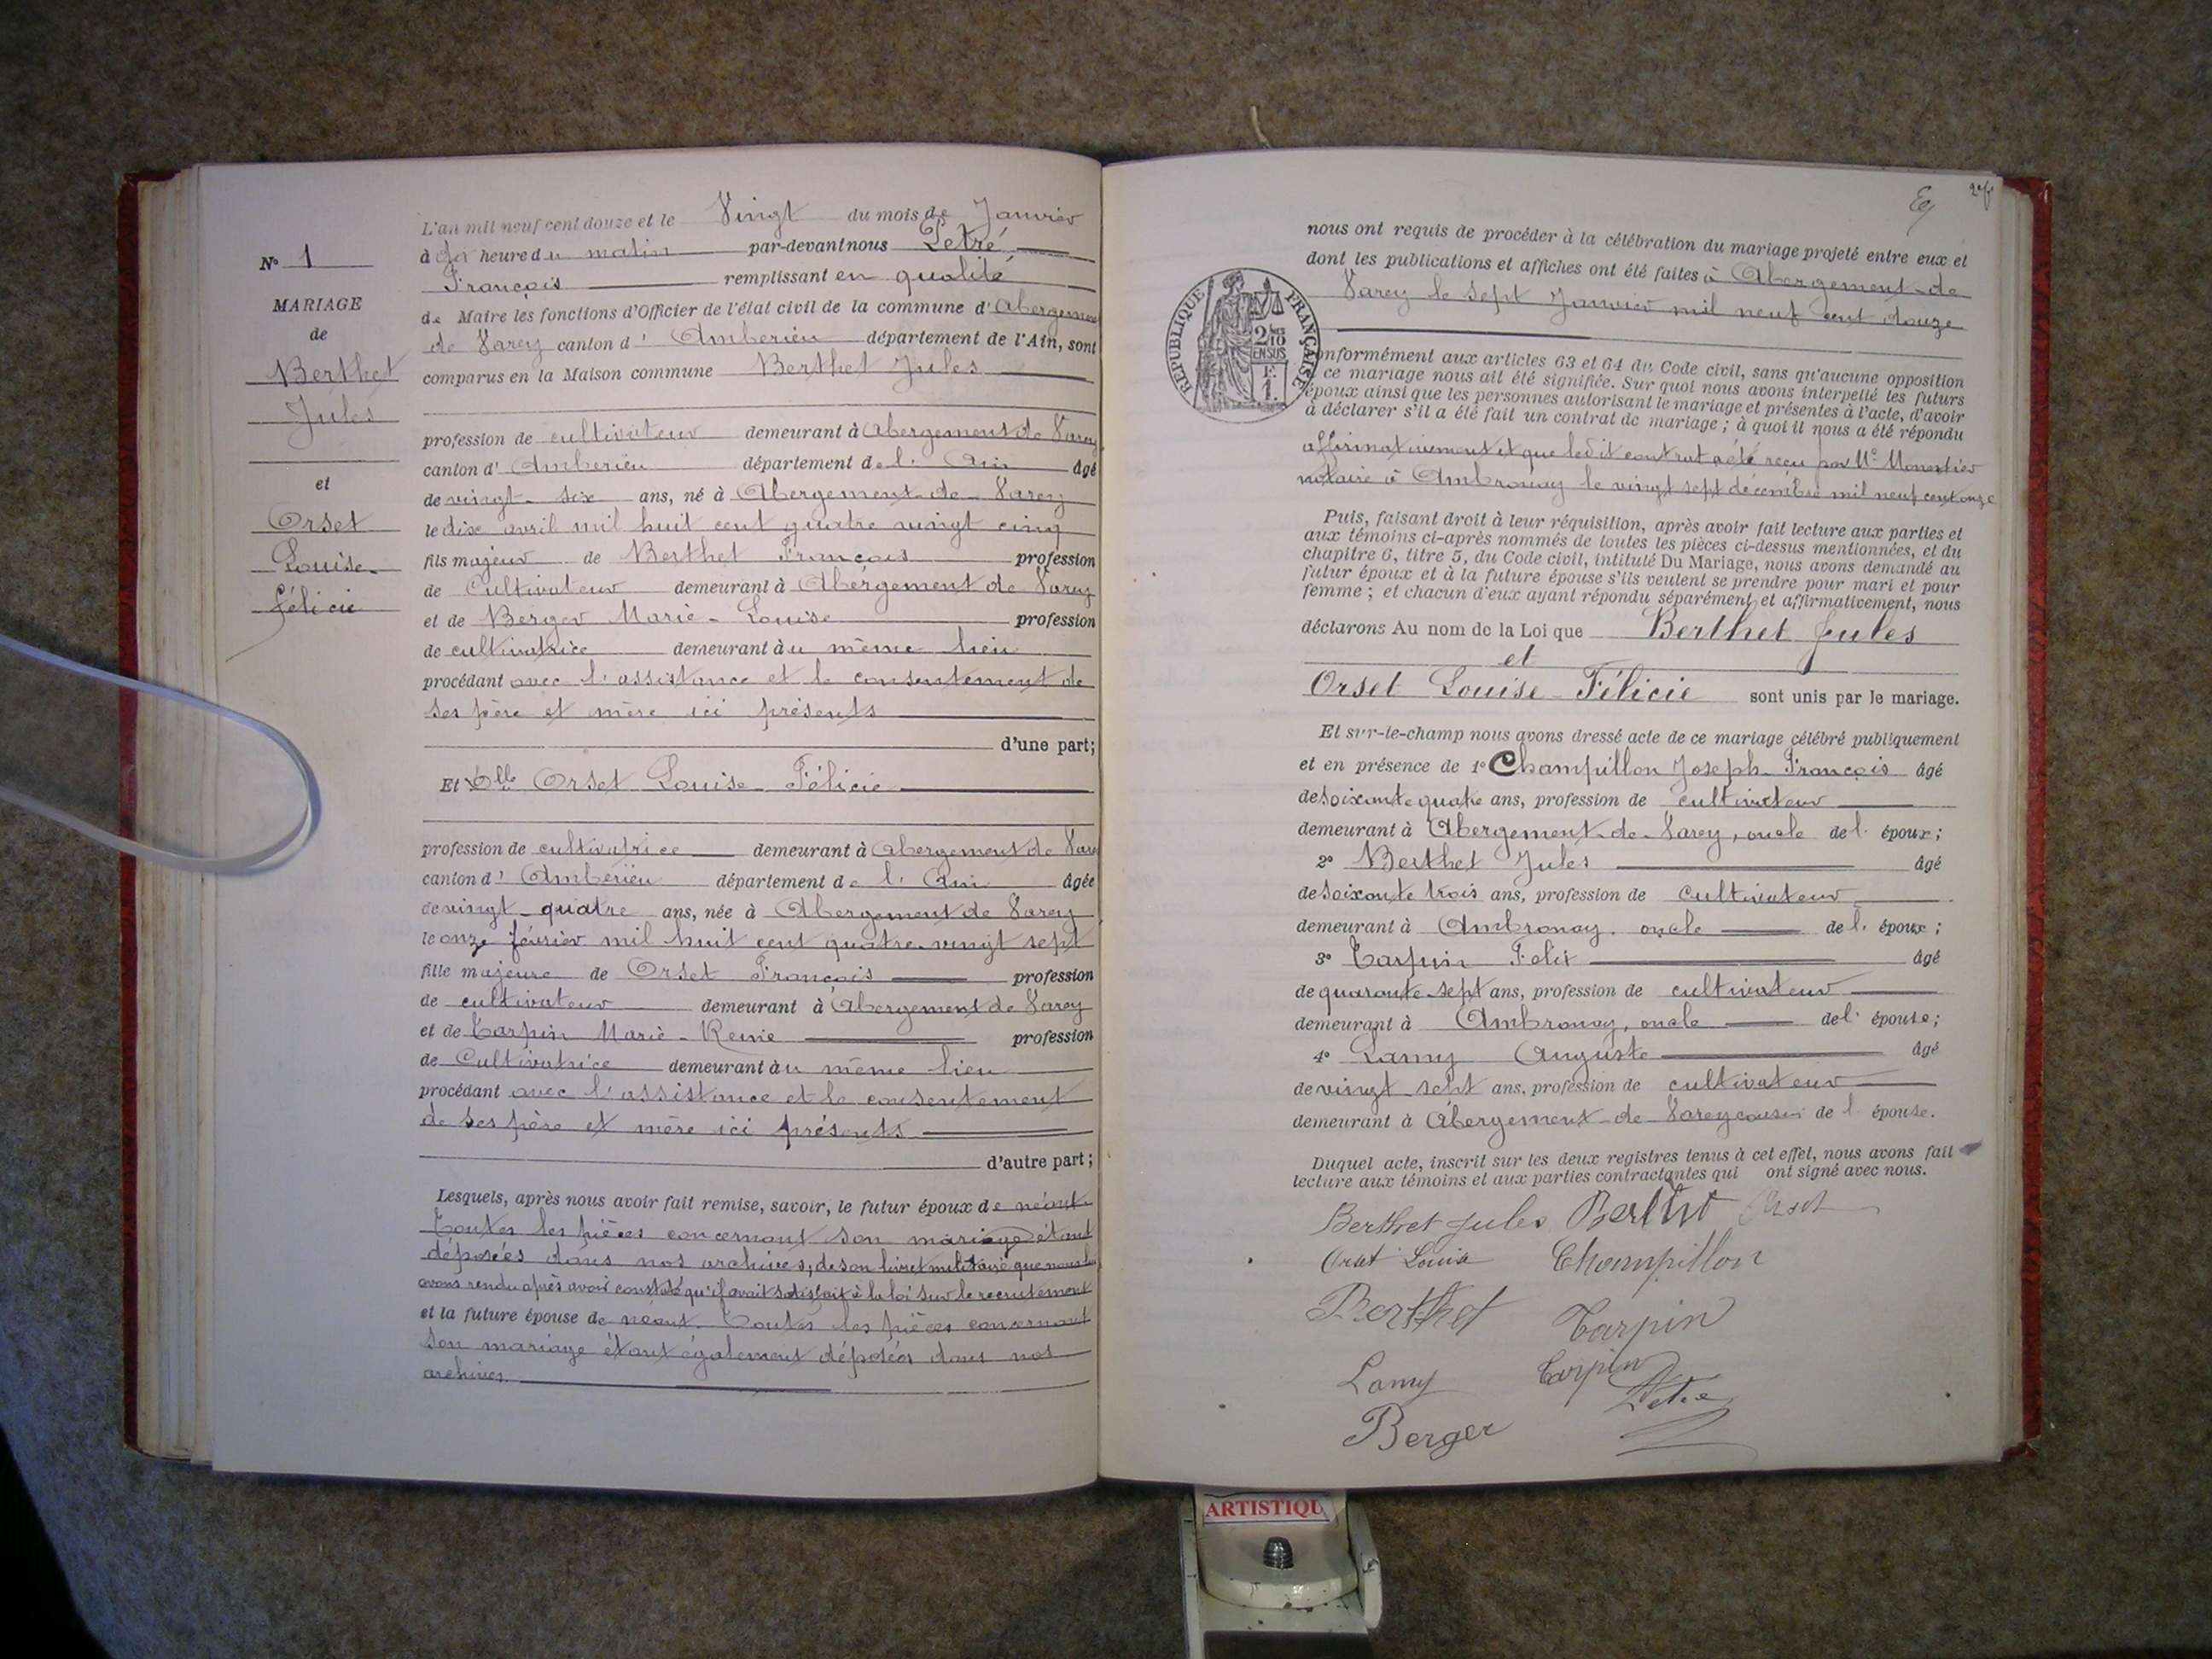 N° 1
MARIAGE
de
Berthet
Jules
et
Orset
Louise-
Félicie
L'an mil neuf cent douze et le Vingt du mois de Janvier
à heure du matin par-devant nous Letré
François remplissant en qualité
de Maire les fonctions d'Officier de l'état civil de la commune d'Abergement
de Varey canton d'Ambérieu département de l'Ain, sont
comparus en la Maison commune Berthet Jules
profession de cultivateur demeurant à Abergement de Varey
canton d'Ambérieu département de l'Ain âgé
de vingt-six ans, né à Abergement-de-Varey
le dix avril mil huit cent quatre vingt cinq
fils majeur de Berthet François profession
de Cultivateur demeurant à Abergement de Varey
et de Berger Marie-Louise profession
de cultivatrice demeurant au même lieu
procédant avec l'assistance et le consentement de
ses père et mère ici présents
d'une part;
Et Dlle Orset Louise-Félicie
profession de cultivatrice demeurant à Abergement de Vare
canton d'Ambérieu département de l'Ain âgée
de vingt-quatre ans, née à Abergement de Varey
le onze février mil huit cent quatre-vingt sept
fille majeure de Orset François profession
de cultivateur demeurant à Abergement de Varey
et de Tarpin Marie-Reine profession
de Cultivatrice demeurant au même lieu
procédant avec l'assistance et le consentement
de ses père et mère ici présents
d'autre part;
Lesquels, après nous avoir fait remise, savoir, le futur époux de néant
Toutes les pièces concernant son mariage étant
déposées dans nos archives, de son livret militaire que nous lui
avons rendu après avoir constaté qu'il avait satisfait à la loi sur le recrutement
et la future épouse de néant. Toutes les pièces concernant
son mariage étant également déposées dans nos
archives.
nous ont requis de procéder à la célébration du mariage projeté entre eux et
dont les publications et affiches ont été faites à Abergement-de
Varey le sept Janvier mil neuf cent douze
RÉPUBLIQUE FRANÇAISE
2/10
EN SUS
F.
1.
onformément aux articles 63 et 64 du Code civil, sans qu'aucune opposition
ce mariage nous ait été signifiée. Sur quoi nous avons interpellé les futurs
époux ainsi que les personnes autorisant le mariage et présentes à l'acte, d'avoir
à déclarer s'il a été fait un contrat de mariage; à quoi il nous a été répondu
affirmativement et que ledit contrat a été reçu par Me Monestier
notaire à Ambronay le vingt sept décembre mil neuf cent onze
Puis, faisant droit à leur réquisition, après avoir fait lecture aux parties et
aux témoins ci-après nommés de toutes les pièces ci-dessus mentionnées, et du
chapitre 6, titre 5, du Code civil, intitulé Du Mariage, nous avons demandé au
futur époux et à la future épouse s'ils veulent se prendre pour mari et pour
femme; et chacun d'eux ayant répondu séparément et affirmativement, nous
déclarons Au nom de la Loi que Berthet Jules
et
Orset Louise-Félicie sont unis par le mariage.
Et sur-le-champ nous avons dressé acte de ce mariage célébré publiquement
et en présence de 1° Champillon Joseph-François âgé
de soixante quatre ans, profession de cultivateur
demeurant à Abergement-de-Varey, oncle de l'époux;
2° Berthet Jules âgé
de soixante trois ans, profession de cultivateur
demeurant à Ambronay, oncle de l'époux;
3° Tarpin Felix âgé
de quarante-sept ans, profession de cultivateur
demeurant à Ambronay, oncle de l'épouse;
4° Lamy Auguste âgé
de vingt sept ans, profession de cultivateur
demeurant à Abergement-de-Varey cousin de l'épouse.
Duquel acte, inscrit sur les deux registres tenus à cet effet, nous avons fait
lecture aux témoins et aux parties contractantes qui ont signé avec nous.
Berthet Jules Berthet Orset
Orset Louise Champillon
Berthet Tarpin
Lamy Tarpin
Berger Letré
ARTISTIQU